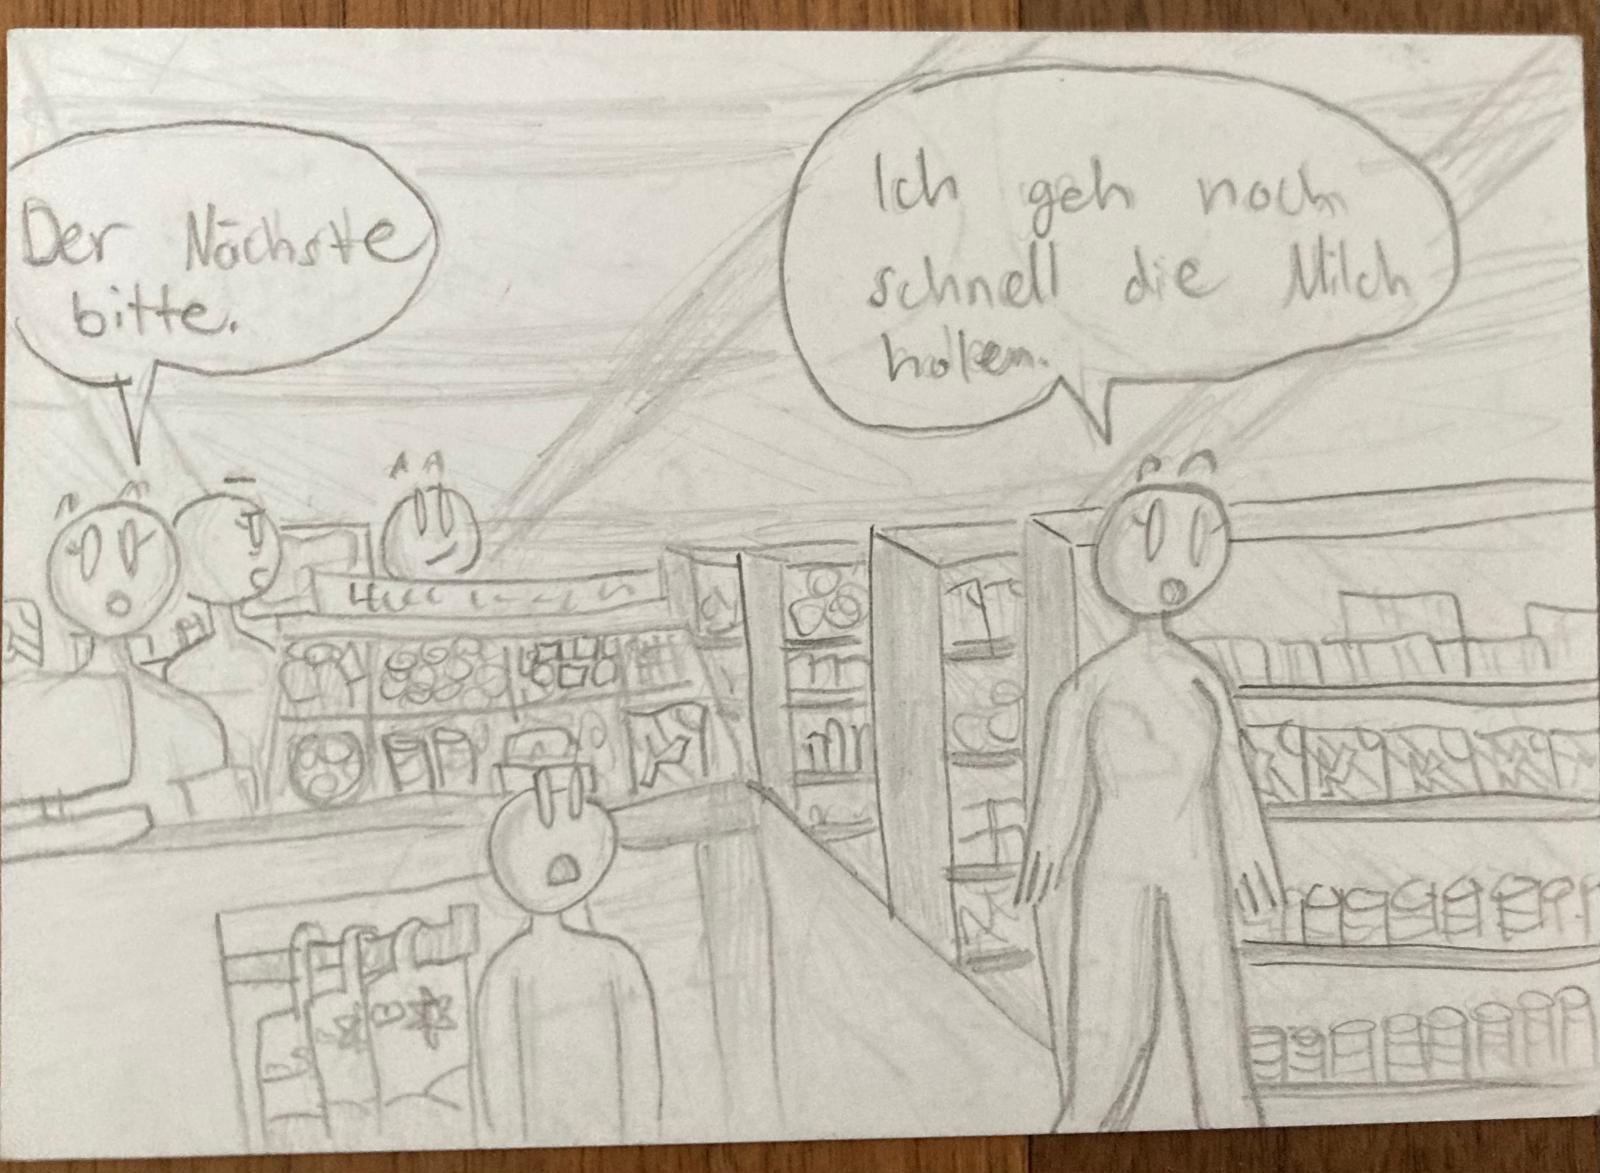 Der Nächste
bitte.
Ich geh noch
schnell die Milch
holen.